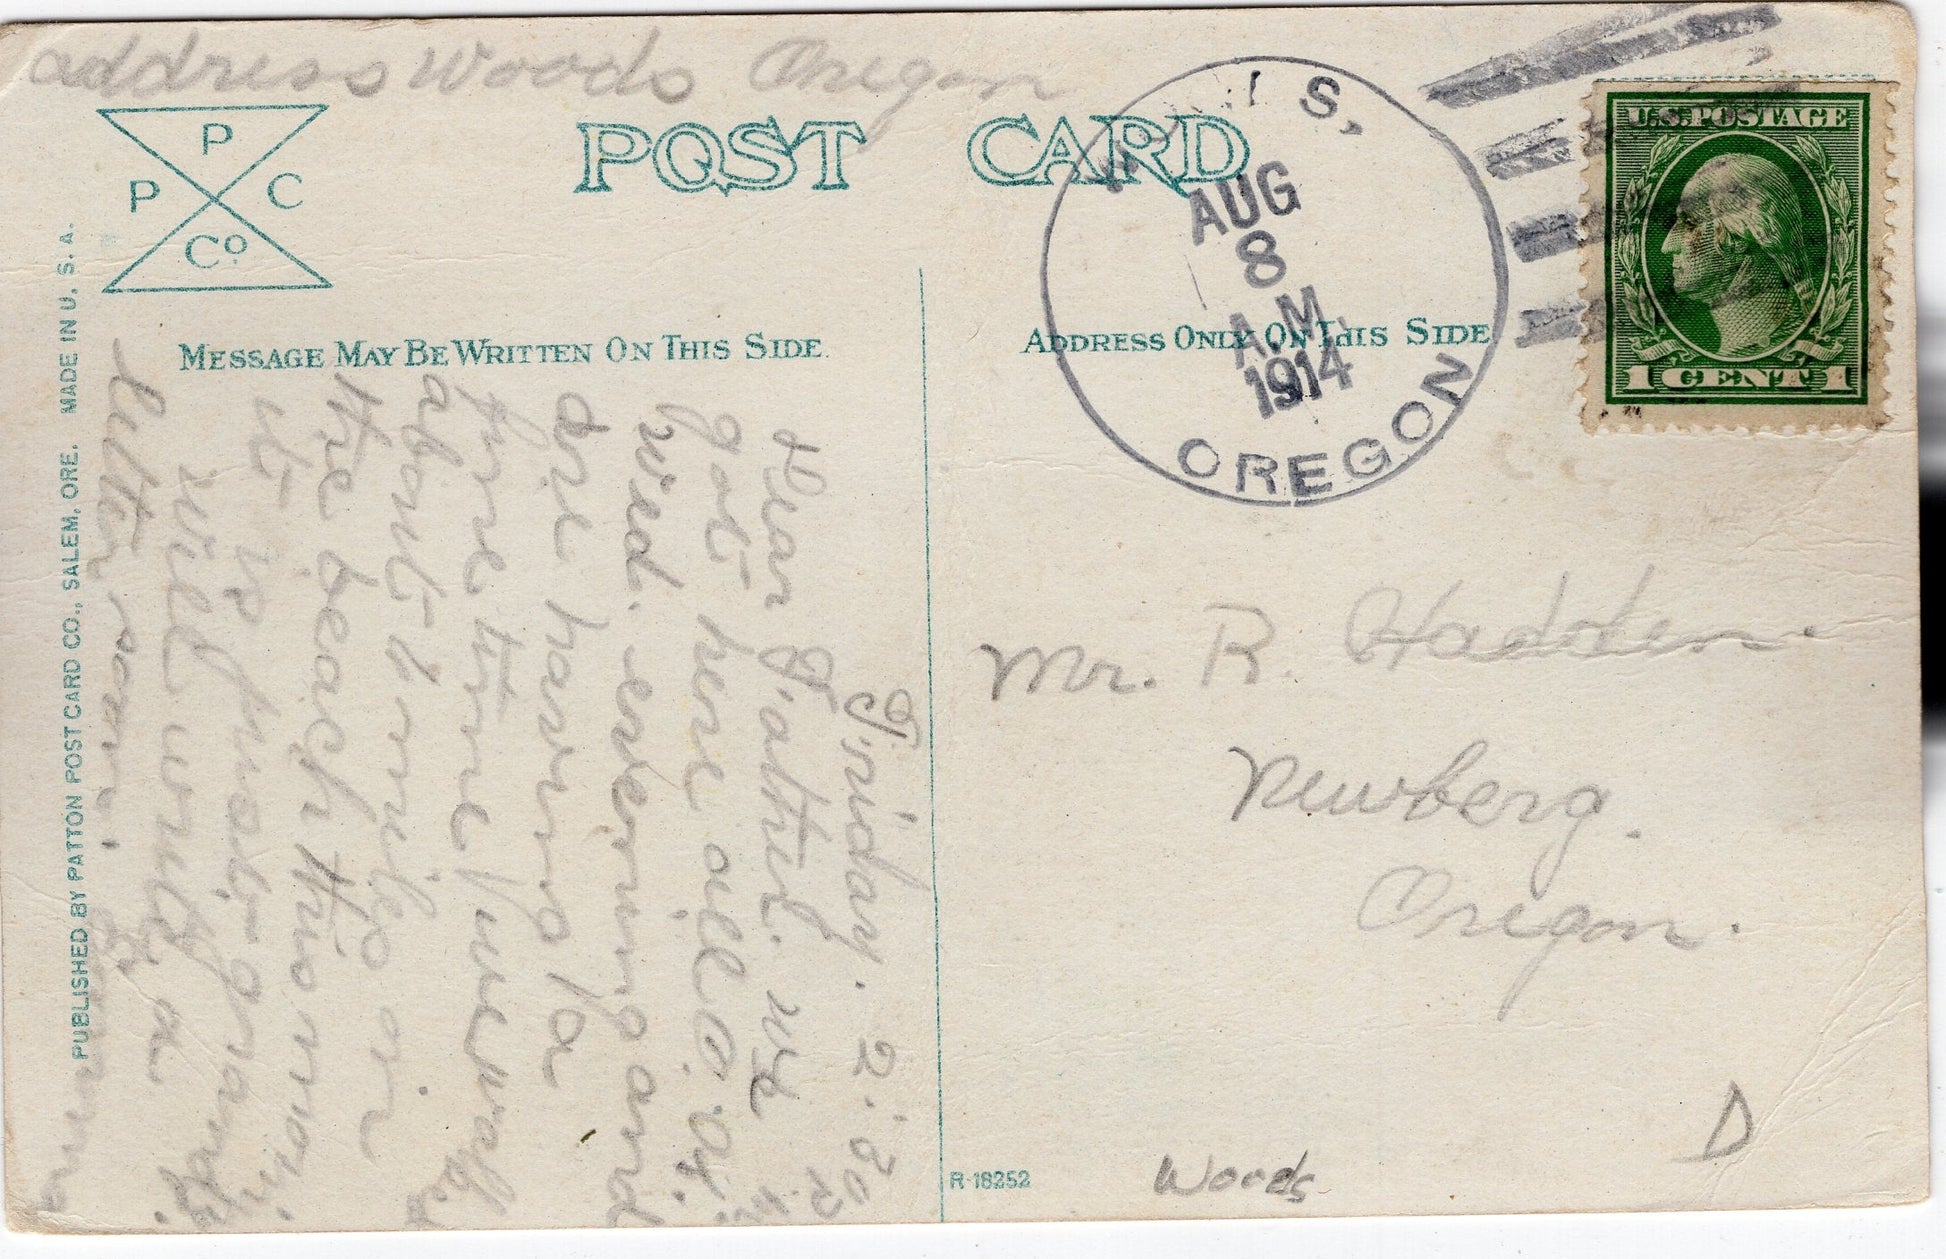 address Woods Oregon
P
P C
Co.
POST CARD
MESSAGE MAY BE WRITTEN ON THIS SIDE.
ADDRESS ONLY ON THIS SIDE
PUBLISHED BY PATTON POST CARD CO., SALEM, ORE. MADE IN U. S. A.
IS,
AUG
8
A.M.
1914
OREGON
U.S. POSTAGE
1 CENT 1
Friday. 2:30 P.
Dear Father. we
got here all O.K.
Wed. evening and
are having a
fine time we walked
about miles on
the beach this morning
it is just grand.
Will write a
letter soon.
Mr. R. Hadden.
Newberg.
Oregon.
R-18252
Woods
D